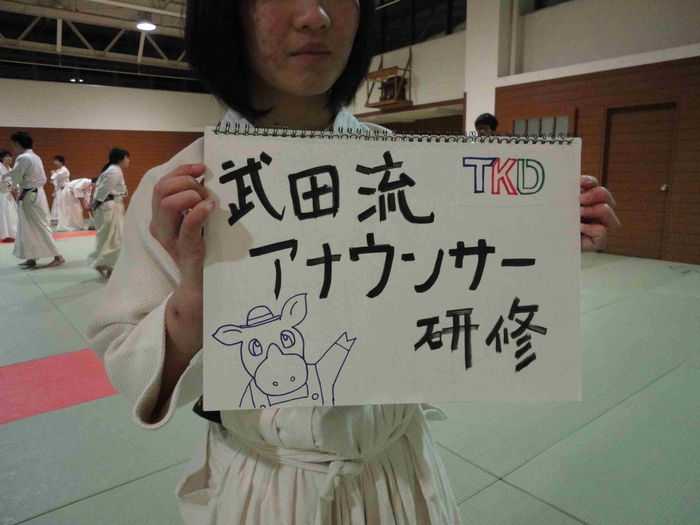 武田流
TKD
アナウンサー
研修